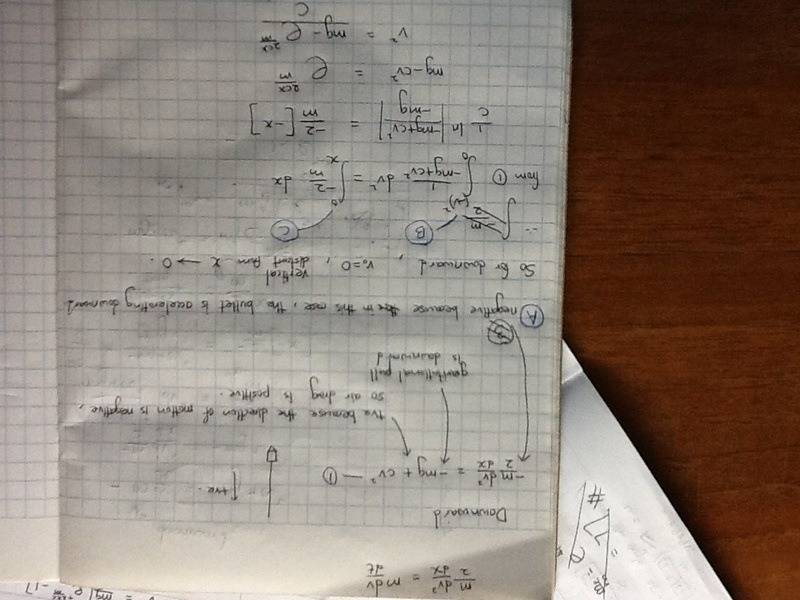 m/2 dv²/dx = m dv/dt
Downward
-m/2 dv²/dx = -mg + cv² — ①
↑+ve.
+ve because the direction of motion is negative,
so air drag is positive.
gravitational pull
is downward
Ⓐ negative because in this case, the bullet is accelerating downward
So for downward, v₀=0, vertical distant from x → 0.
∴
Ⓑ Ⓒ
from ① ∫₀ 1/(-mg+cv²) dv² = ∫ₓ⁰ -2/m dx
1/c ln |(-mg+cv²)/(-mg)| = -2/m [-x]
mg-cv² = e^(2cx/m)
v² = (mg - e^(2cx/m))/c